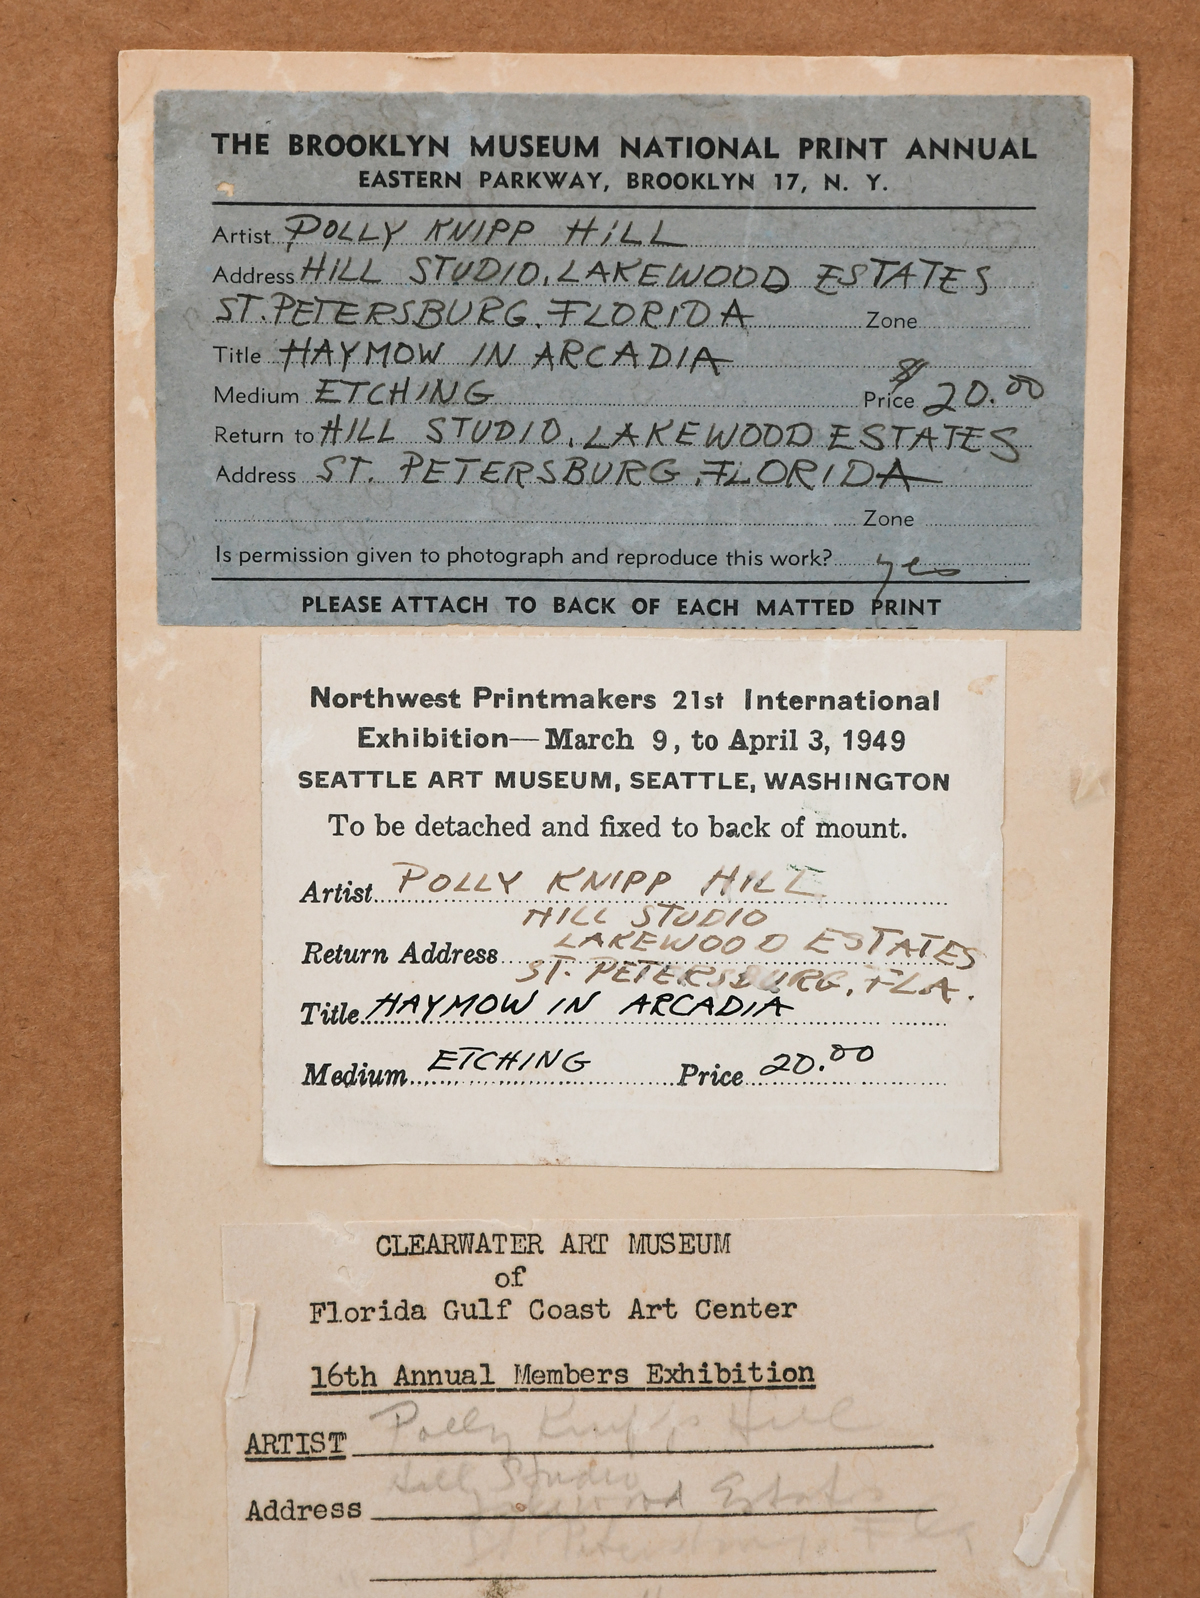 THE BROOKLYN MUSEUM NATIONAL PRINT ANNUAL
EASTERN PARKWAY, BROOKLYN 17, N. Y.
Artist POLLY KNIPP HILL
Address HILL STUDIO, LAKEWOOD ESTATES
ST. PETERSBURG, FLORIDA Zone
Title HAYMOW IN ARCADIA
Medium ETCHING Price $20.00
Return to HILL STUDIO, LAKEWOOD ESTATES
Address ST. PETERSBURG, FLORIDA
Zone
Is permission given to photograph and reproduce this work? yes
PLEASE ATTACH TO BACK OF EACH MATTED PRINT
Northwest Printmakers 21st International
Exhibition—March 9, to April 3, 1949
SEATTLE ART MUSEUM, SEATTLE, WASHINGTON
To be detached and fixed to back of mount.
Artist POLLY KNIPP HILL
HILL STUDIO
Return Address LAKEWOOD ESTATES
ST. PETERSBURG, FLA.
Title HAYMOW IN ARCADIA
Medium ETCHING Price 20.00
CLEARWATER ART MUSEUM
of
Florida Gulf Coast Art Center
16th Annual Members Exhibition
ARTIST Polly Knipp Hill
Hill Studio
Address Lakewood Estates
St Petersburg, Fla